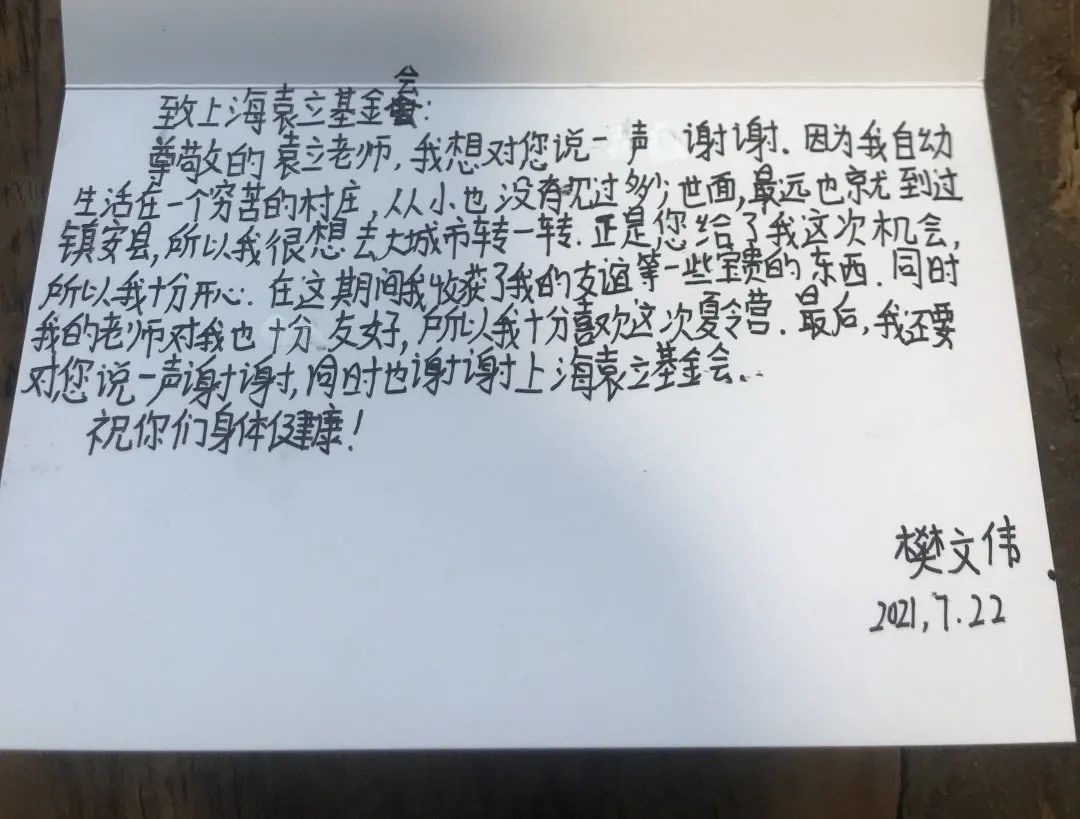 致上海袁立基金会:
尊敬的袁立老师,我想对您说一声 谢谢.因为我自幼
生活在一个穷苦的村庄,从小也没有见过多少世面,最远也就到过
镇安县,所以我很想去大城市转一转.正是您给了我这次机会,
所以我十分开心.在这期间我收获了我的友谊等一些宝贵的东西.同时
我的老师对我也十分友好,所以我十分喜欢这次夏令营.最后,我还要
对您说一声谢谢,同时也谢谢上海袁立基金会...
祝你们身体健康!
樊文伟
2021,7.22